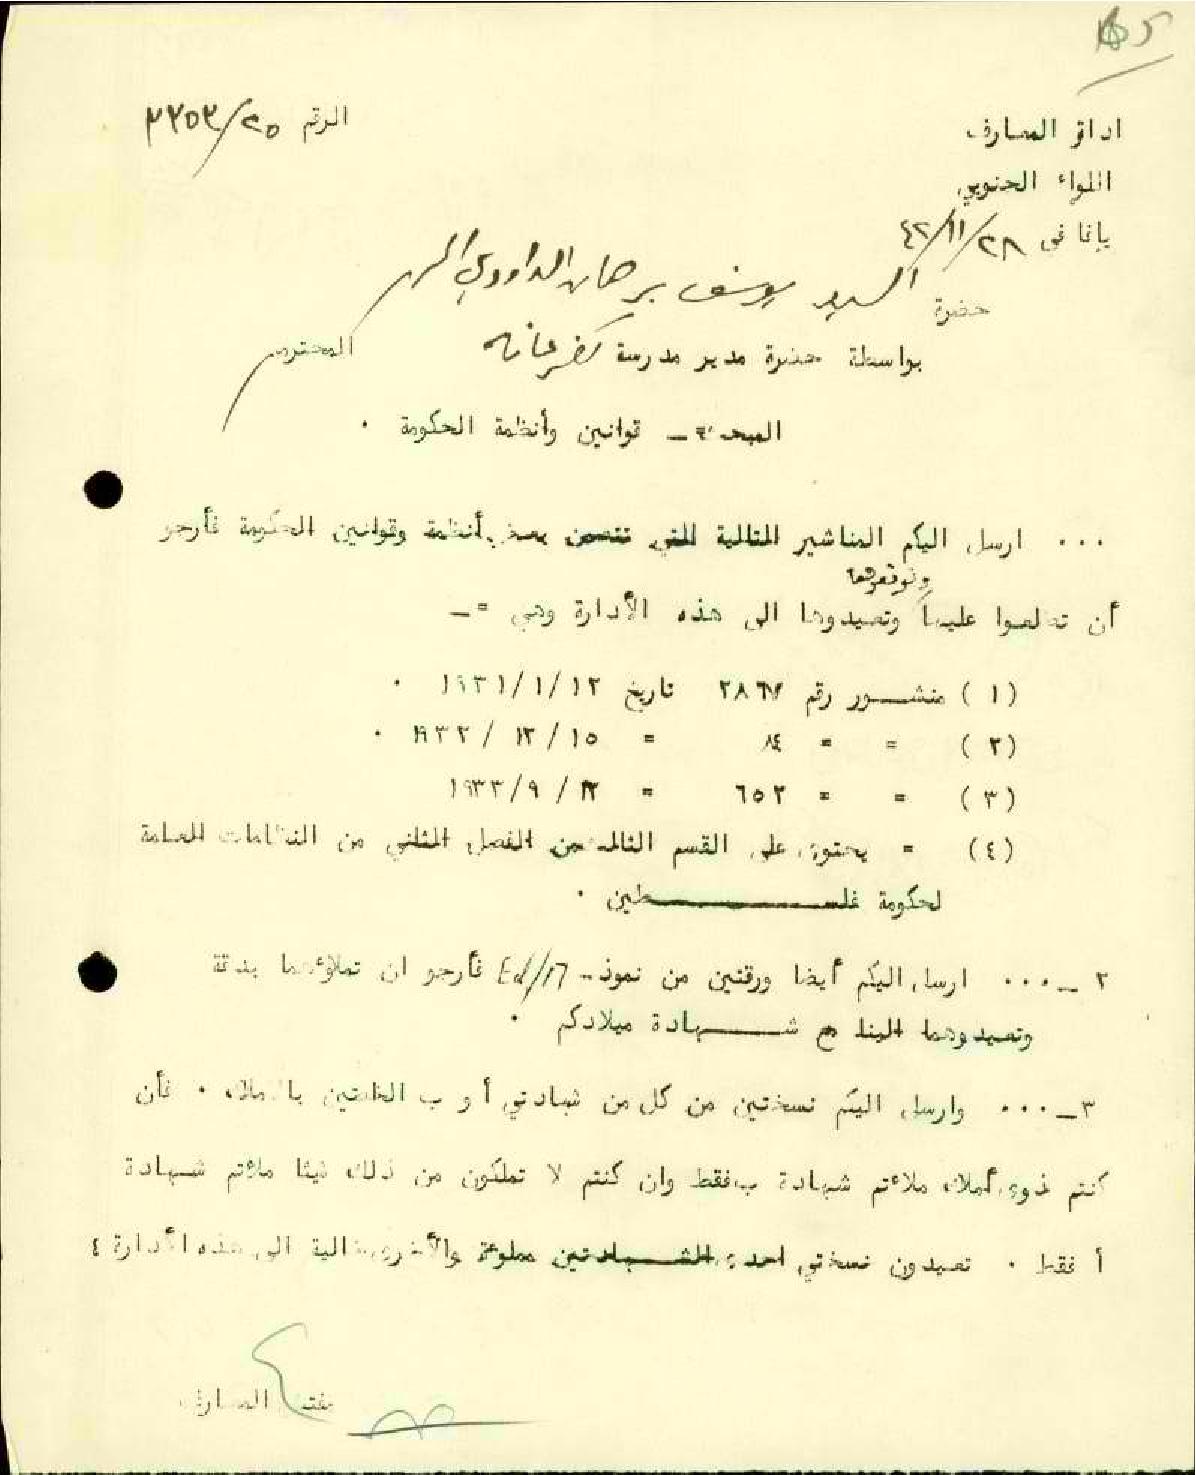 ٤٥
الرقم ٢٥/٣٢٥٣
ادارة المعارف
اللواء الجنوبي
يافا في ٢٨/١١/٤٢
حضرة السيد يوسف برهان الداودي
بواسطة حضرة مدير مدرسة كفرعانه المحترم
المبحث - قوانين وأنظمة الحكومة .
... ارسل اليكم المناشير التالية التي تتضمن بعض أنظمة وقوانين الحكومة فأرجو
وتوقعوها
أن تطلعوا عليها وتعيدوها الى هذه الأدارة وهي =-
(١) منشور رقم ٢٨٦٧ تاريخ ١٩٣١/١/١٢ .
(٢) = = ٨٤ = ١٥/ ١٢/ ١٩٣٢ .
(٣) = = ٦٥٢ = ١٢/ ٩/ ١٩٣٣
(٤) = يحتوى على القسم الثالث من الفصل الثاني من النظامات العامة
لحكومة فلسطين .
٢ _... ارسل اليكم أيضا ورقتين من نموذج Ed/17 فأرجو ان تملاؤهما بدقة
وتعيدوهما الينا مع شهادة ميلادكم .
٣ _... وارسل اليكم نسختين من كل من شهادتي أ و ب بالاملاك . فأن
كنتم ذوى أملاك ملاءتم شهادة ب فقط وان كنتم لا تملكون من ذلك شيئا ملاءتم شهادة
أ فقط . تعيدون نسختي احدى الشهادتين مملوءة والأخرى خالية الى هذه الأدارة ٤
مفتش المعارف